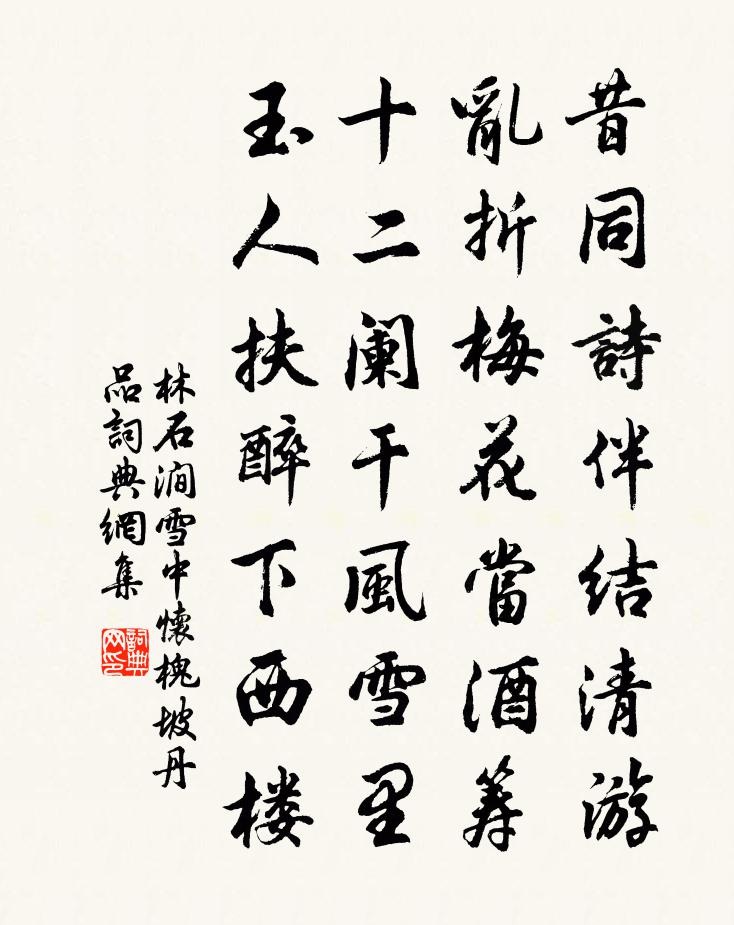 昔同詩伴结清游
亂折梅花當酒筹
十二阑干風雪里
玉人扶醉下西楼
林石澗雪中懷槐坡丹
品詞典網集
詞典网印